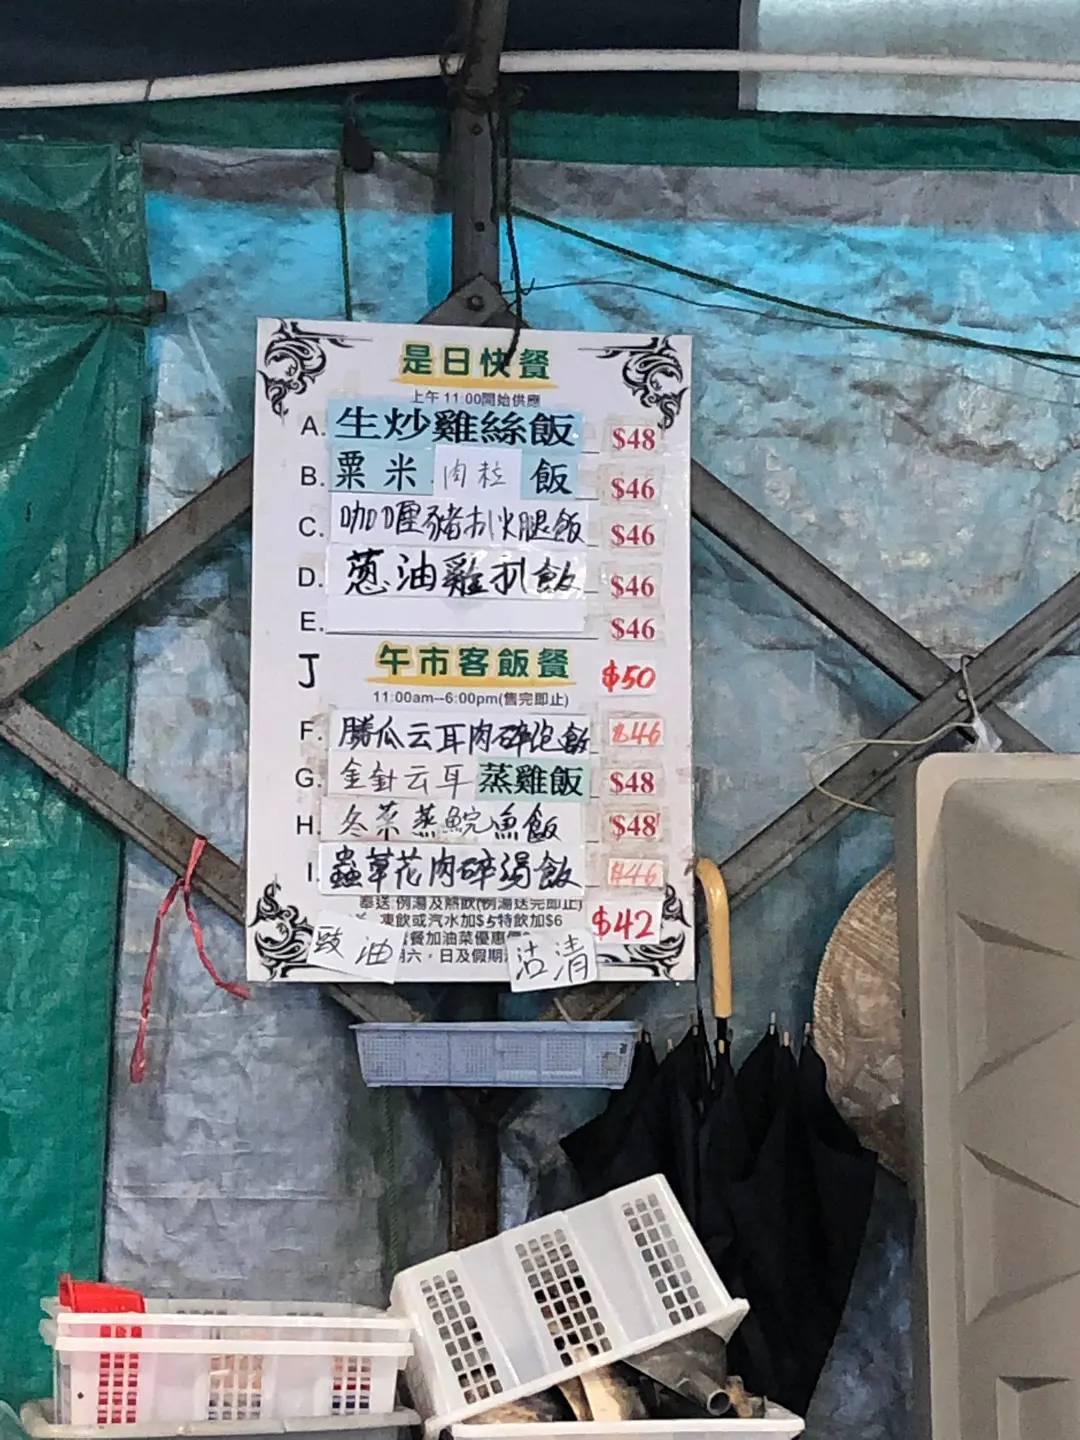 是日快餐
上午 11:00開始供應
A. 生炒雞絲飯 $48
B. 粟米肉粒飯 $46
C. 咖喱豬扒火腿飯 $46
D. 蔥油雞扒飯 $46
E. $46
J 午市客飯餐 $50
11:00am–6:00pm(售完即止)
F. 勝瓜云耳肉碎飽飯 $46
G. 金針云耳蒸雞飯 $48
H. 冬菜蒸鯇魚飯 $48
I. 蟲草花肉碎湯飯 $46
奉送 例湯及熱飲(例湯送完即止)
凍飲或汽水加$5特飲加$6 $42
餐加油菜優惠價
豉油 六, 日及假期 沽清